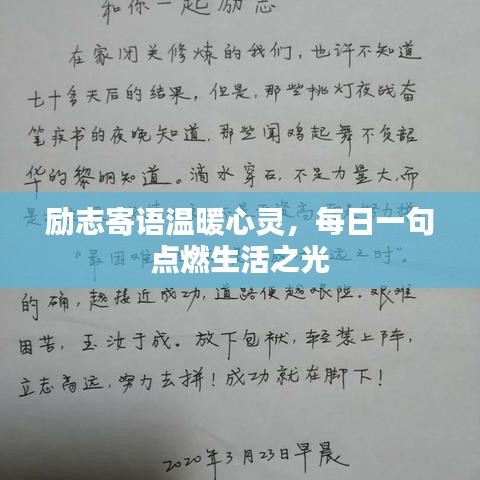 和你一起励志
在家闭关修炼的我们，也许不知道
七十多天后的结果，但是，那些挑灯夜战奋
笔疾书的夜晚知道，那些闻鸡起舞不负韶
华的黎明知道。滴水穿石，不是力量大，而
励志寄语温暖心灵，每日一句
点燃生活之光
的确，越接近成功，道路便越艰险。艰难
困苦，玉汝于成。放下包袱，轻装上阵，
立志高远，努力去拼！成功就在脚下！
2020年3月23日早晨